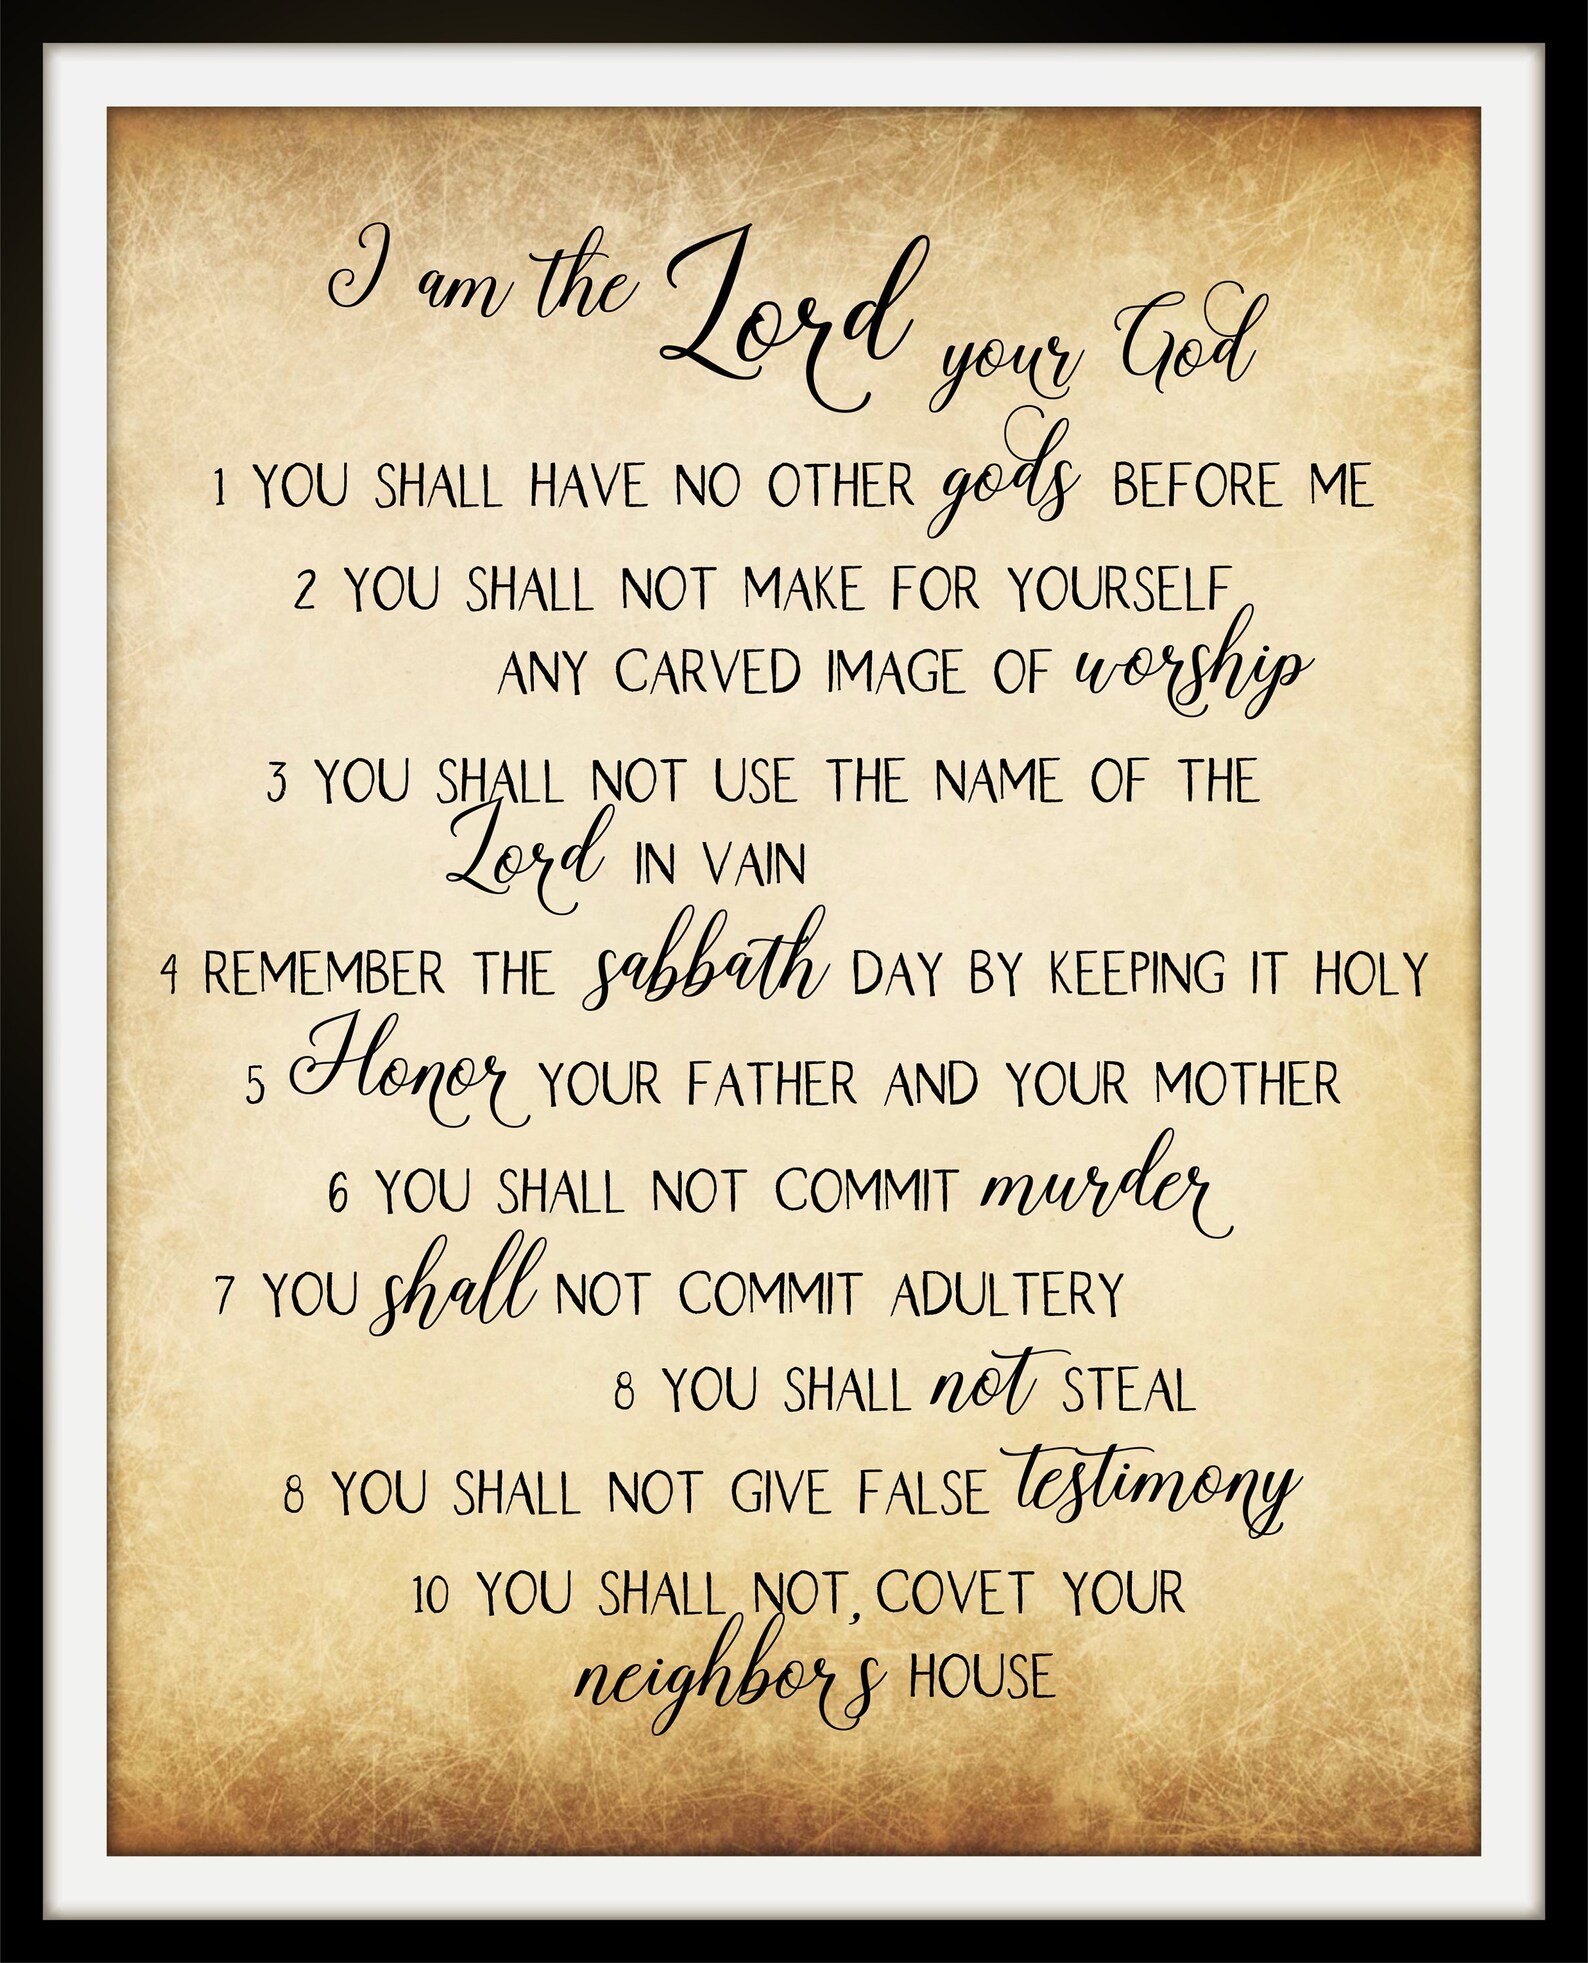 I am the Lord your God
1 YOU SHALL HAVE NO OTHER gods BEFORE ME
2 YOU SHALL NOT MAKE FOR YOURSELF
ANY CARVED IMAGE OF worship
3 YOU SHALL NOT USE THE NAME OF THE
Lord IN VAIN
4 REMEMBER THE sabbath DAY BY KEEPING IT HOLY
5 Honor YOUR FATHER AND YOUR MOTHER
6 YOU SHALL NOT COMMIT murder
7 YOU shall NOT COMMIT ADULTERY
8 YOU SHALL not STEAL
8 YOU SHALL NOT GIVE FALSE testimony
10 YOU SHALL NOT COVET YOUR
neighbor's HOUSE